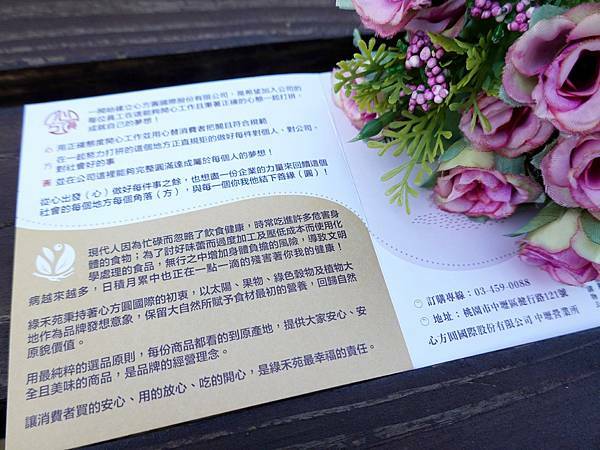 一開始建立心方圓國際股份有限公司，是希望加入公司的
每位員工在這能夠開心工作且秉著正確的心態一起打拼，
成就自己的夢想！
心 用正確態度開心工作並用心替消費者把關且符合規範
方 在一起努力打拼的這個地方正直規矩的做好每件對個人、對公司、
對社會好的事
圓 並在公司這裡能夠完整圓滿達成屬於每個人的夢想！
從心出發（心）做好每件事之餘，也想盡一份企業的力量來回饋這個
社會的每個地方每個角落（方），與每一個你我他結下善緣（圓）！
現代人因為忙碌而忽略了飲食健康，時常吃進許多危害身
體的食物；為了討好味蕾而過度加工及壓低成本而使用化
學處理的食品，無行之中增加身體負擔的風險，導致文明
病越來越多，日積月累中也正在一點一滴的殘害著你我的健康！
綠禾苑秉持著心方圓國際的初衷，以太陽、果物、綠色穀物及植物大
地作為品牌發想意象，保留大自然所賦予食材最初的營養，回歸自然
原貌價值。
用最純粹的選品原則，每份商品都看的到原產地，提供大家安心、安
全且美味的商品，是品牌的經營理念。
讓消費者買的安心、用的放心、吃的開心，是綠禾苑最幸福的責任。
訂購專線：03-459-0088
地址：桃園市中壢區健行路121號
心方圓國際股份有限公司 中壢營業所